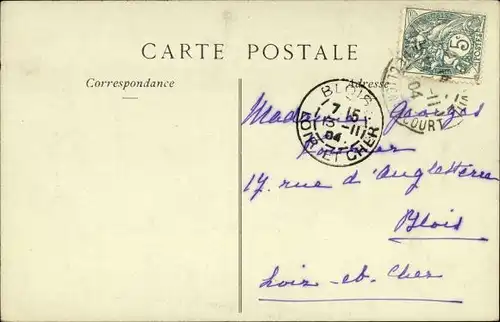 CARTE POSTALE
Correspondance
Adresse
5c
BLOIS
7 15
13 -11
04
LOIR ET CHER
04
-11
COURT
Madame Georges
17, rue d'Angleterre
Blois
Loir-et-Cher